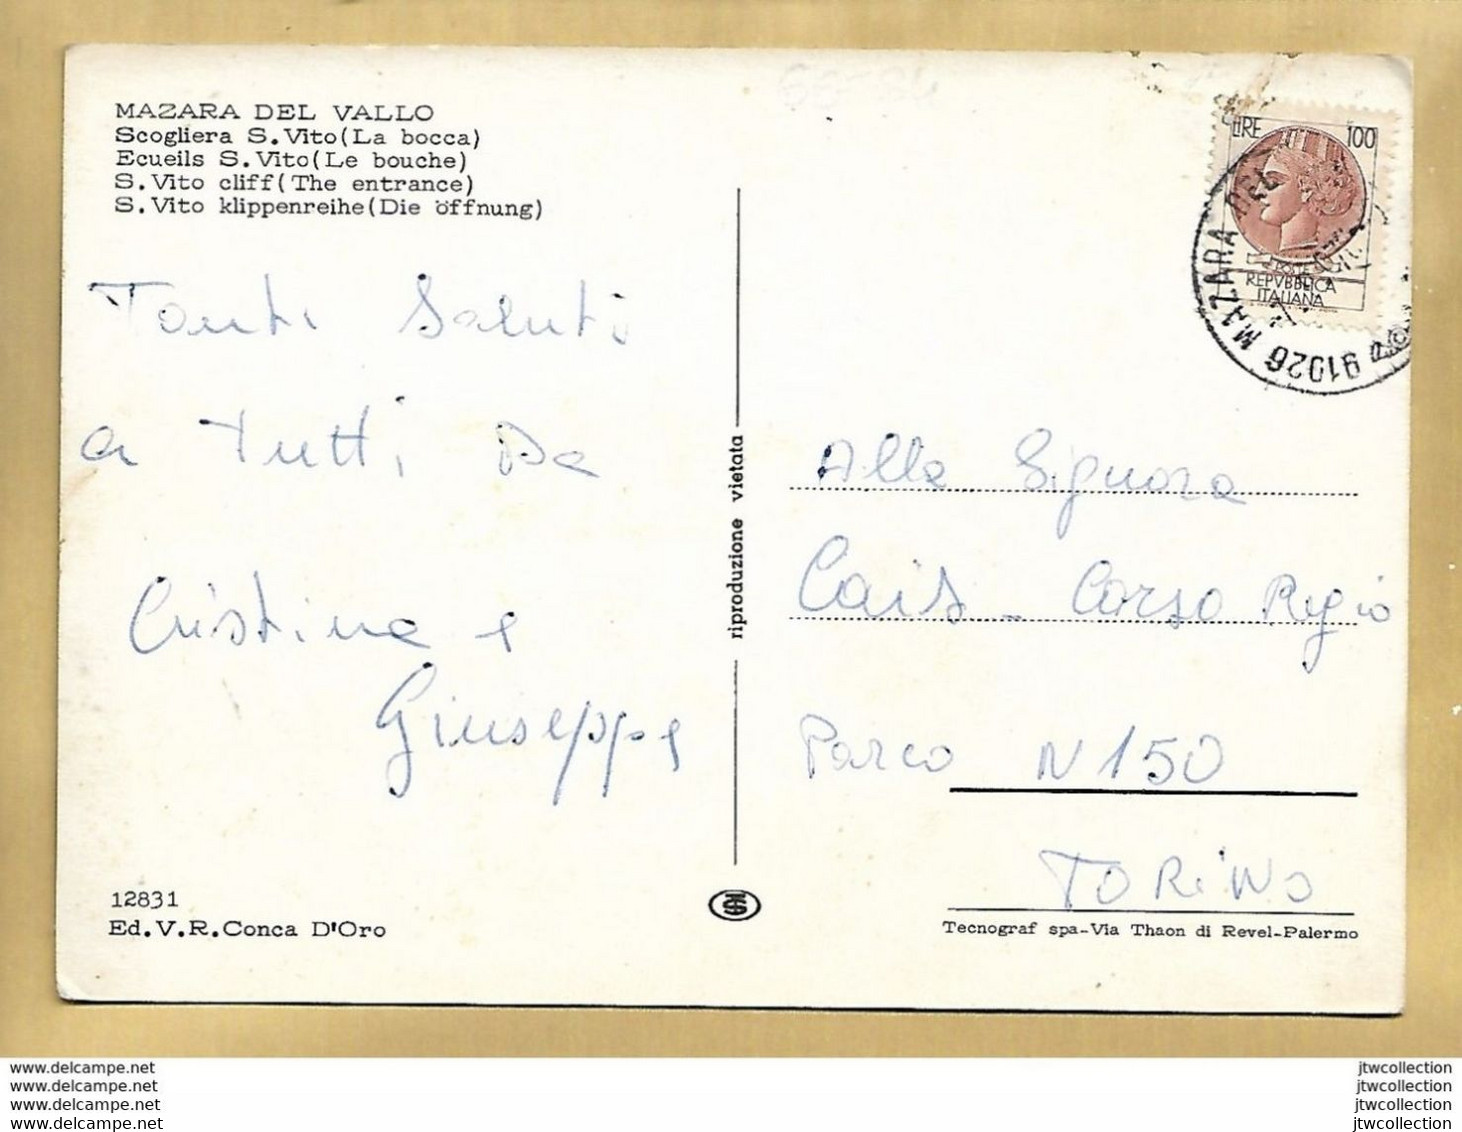 MAZARA DEL VALLO
Scogliera S.Vito(La bocca)
Ecueils S.Vito(Le bouche)
S.Vito cliff(The entrance)
S.Vito klippenreihe(Die öffnung)
LIRE 100
REPVBBLICA
ITALIANA
91026 MAZARA DEL
Tanti Saluti
a Tutti Da
Cristina e
Giuseppe
riproduzione vietata
Alla Signora
Cais - Corso Regio
Parco N 150
TORiNO
12831
Ed.V.R.Conca D'Oro
Tecnograf spa-Via Thaon di Revel-Palermo
www.delcampe.net
www.delcampe.net
www.delcampe.net
www.delcampe.net
jtwcollection
jtwcollection
jtwcollection
jtwcollection